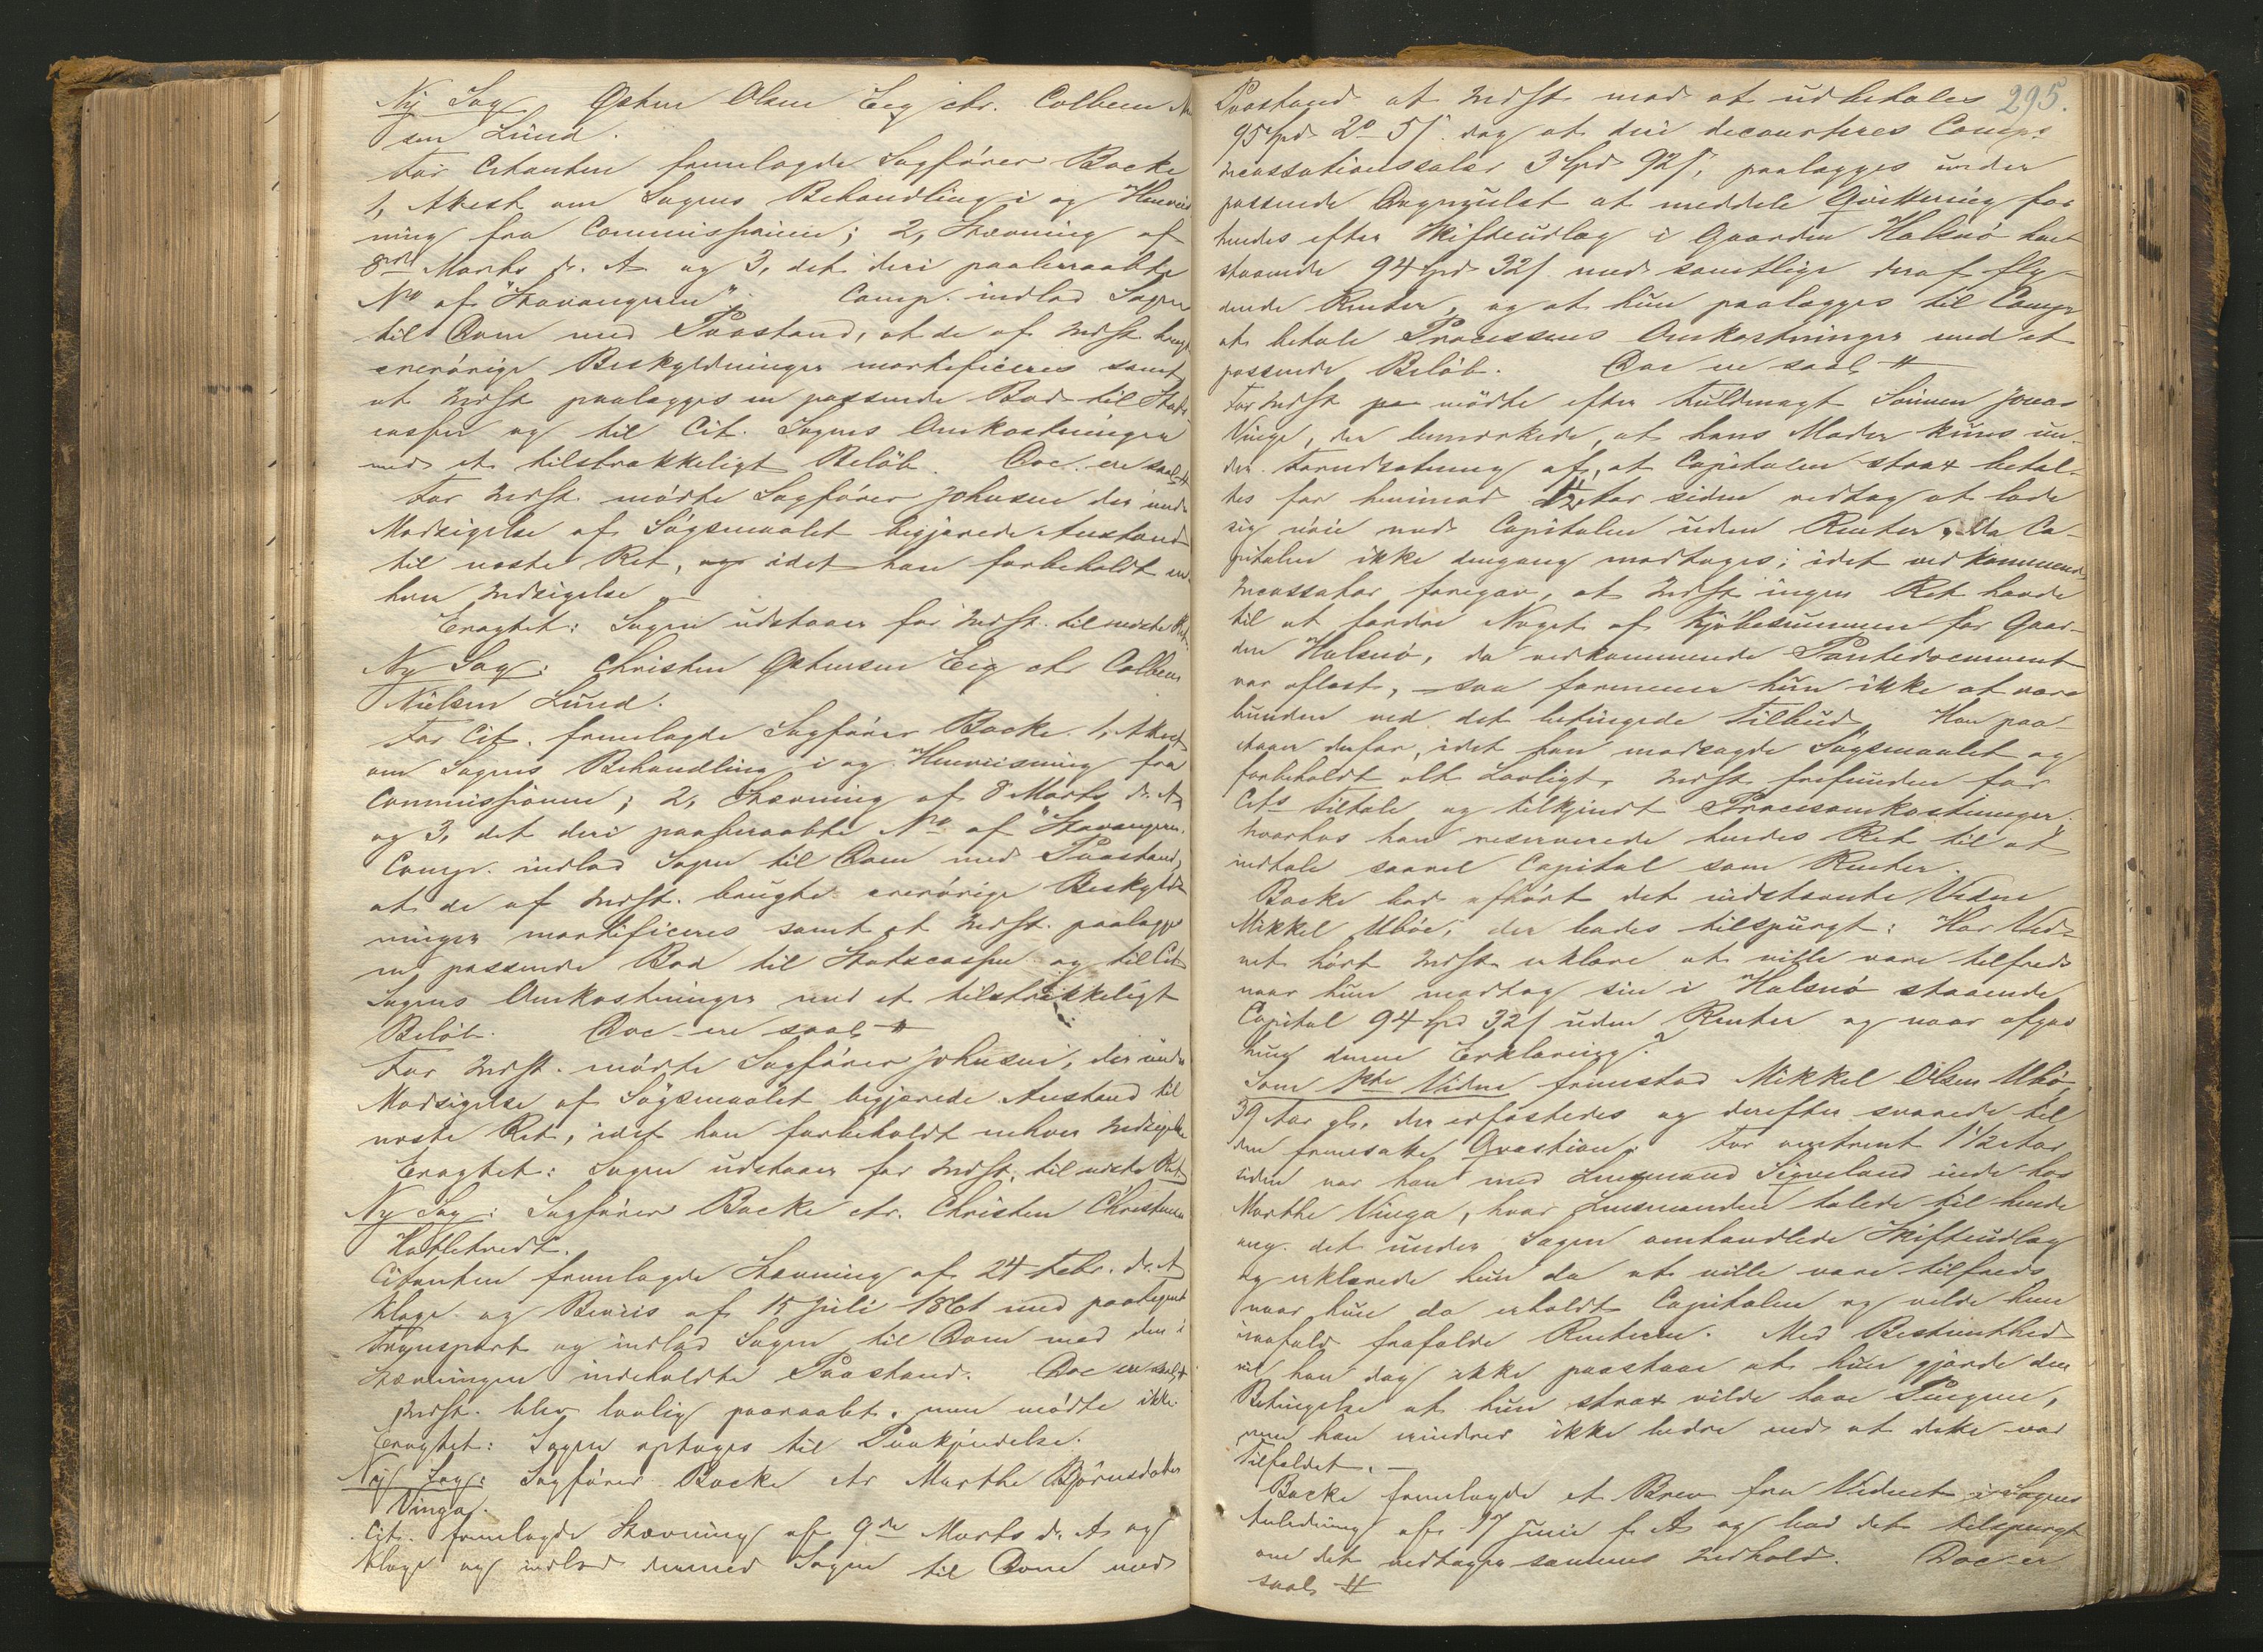 Ny Sag Osten Olsen Eeg ctr. Colbein
sen Lund.
For Citanten fremlagde Sagfører Backe
1, Attest om Sagens Behandling i og Henviis
ning fra Commissionen; 2, Stævning af
8de Marts d. A. og 3, det deri paaberaabte
No af "Stavangeren". Comp. indlod Sagen
til Dom med Paastand, at de af Indst. brugte
ærerørige Beskyldninger mortificeres samt
at Indst paalægges en passende Bod til Stats
cassen og til Cit. Sagens Omkostninger
med et tilstrækkeligt Beløb. Doc. ere saal.
For Indst. mødte Sagfører Johnsen der under
Modsigelse af Søgsmaalet begjærede Anstand
til næste Ret, idet han forbeholdt en
hver Indsigelse
Eragtet: Sagen udstaaer for Indst. til næste Ret.
Ny Sag: Christen Ostensen Eeg ctr Colbein
Nielsen Lund.
For Cit. fremlagde Sagfører Backe 1, Attest
om Sagens Behandling i og Henviisning fra
Commissionen; 2, Stævning af 8 Marts d. A.
og 3, det deri paaberaabte No af "Stavangeren."
Comp. indlod Sagen til Dom med Paastand,
at de af Indst. brugte ærerørige Beskyld-
ninger mortificeres samt at Indst. paalægges
en passende Bod til Statscassen og til Cit
Sagens Omkostninger med et tilstrækkeligt
Beløb. Doc. ere saal.
For Indst. mødte Sagfører Johnsen, der under
Modsigelse af Søgsmaalet begjærede Anstand til
næste Ret, idet han forbeholdt enhver Indsigelse
Eragtet: Sagen udstaaer for Indst. til næste Ret
Ny Sag: Sagfører Backe ctr. Christen Christensen
Hatletvedt.
Citanten fremlagde Stævning af 24 Febr. d. A
Klage og Beviis af 15 Juli 1861 med paategnet
Transport og indlod Sagen til Dom med den i
Stævningen indeholdte Paastand. Doc ere saal.
Indst. blev lovlig paaraabt, men mødte ikke.
Eragtet: Sagen optages til Paakjendelse.
Ny Sag: Sagfører Backe ctr Marthe Bjørnsdatter
Vinga.
Cit. fremlagde Stævning af 9de Marts d. A. og
Klage og indlod dermed Sagen til Dom med
295.
Paastand at Indst mod at udbetales
95 Spd 2 o 5 s. dog at deri decourteres Comps
Incassationssalær 3 Spd 92 s, paalægges under
passende Dagmulct at meddele Qvittering for
hendes efter Skifteudlæg i Gaarden Halsnø hæf
staaende 94 Spd 32 s med samtlige deraf fly-
dende Renter, og at hun paalægges til Comp
at betale Processens Omkostninger med et
passende Beløb. Doc ere saal.
For Indst mødte efter Fuldmagt Sønnen Jonas
Vinge, der bemærkede, at hans Moder kuns un-
der Forudsætning af, at Capitalen strax betal-
tes for henimod 1½ Aar siden vedtog at lade
sig nøie med Capitalen uden Renter. Da Ca-
pitalen ikke dengang modtoges; idet vedkommende
Incassator foregav, at Indst ingen Ret havde
til at fordre Noget af Kjøbesummen for Gaar-
den Halsnø, da vedkommende Pantedocument
var aflæst, saa formener hun ikke at være
bunden ved det betingede Tilbud. Han paa-
staaer derfor, idet han modsagde Søgsmaalet og
forbeholdt alt Lovligt, Indst frifunden for
Cits Tiltale og tilkjendt Procesomkostninger,
hvorhos han reserverede hendes Ret til at
indtale saavel Capital som Renter.
Backe bad afhørt det indstævnte Vidne
Mikkel Ubøe, der bades tilspurgt: Har Vid-
net hørt Indst erklære at ville være tilfreds
naar hun modtog sin i Halsnø staaende
Capital 94 Spd 32 s uden Renter og naar afgav
hun denne Erklæring?
Som 1ste Vidne fremstod Mikkel Olsen Ubø
39 Aar gl., der edfæstedes og derefter svarede til
den fremsatte Qvæstion: For omtrent 1½ Aar
siden var han med Lensmand Sigveland inde hos
Marthe Vinga, hvor Lensmanden talede til hende
ang. det under Sagen omhandlede Skifteudlæg
og erklærede hun da at ville være tilfreds
naar hun da erholdt Capitalen og vilde hun
isaafald frafalde Renterne. Med Bestemthed
vil han dog ikke paastaae at hun gjorde den
Betingelse at hun strax vilde have Pengene,
men han erindrer ikke bedre end at dette var
Tilfældet.
Backe fremlagde et Brev fra Vidnet i Sagens
Anledning af 17 Juni f. A. og bad det tilspurgt
om det vedtager sammes Indhold. Doc er
saal.